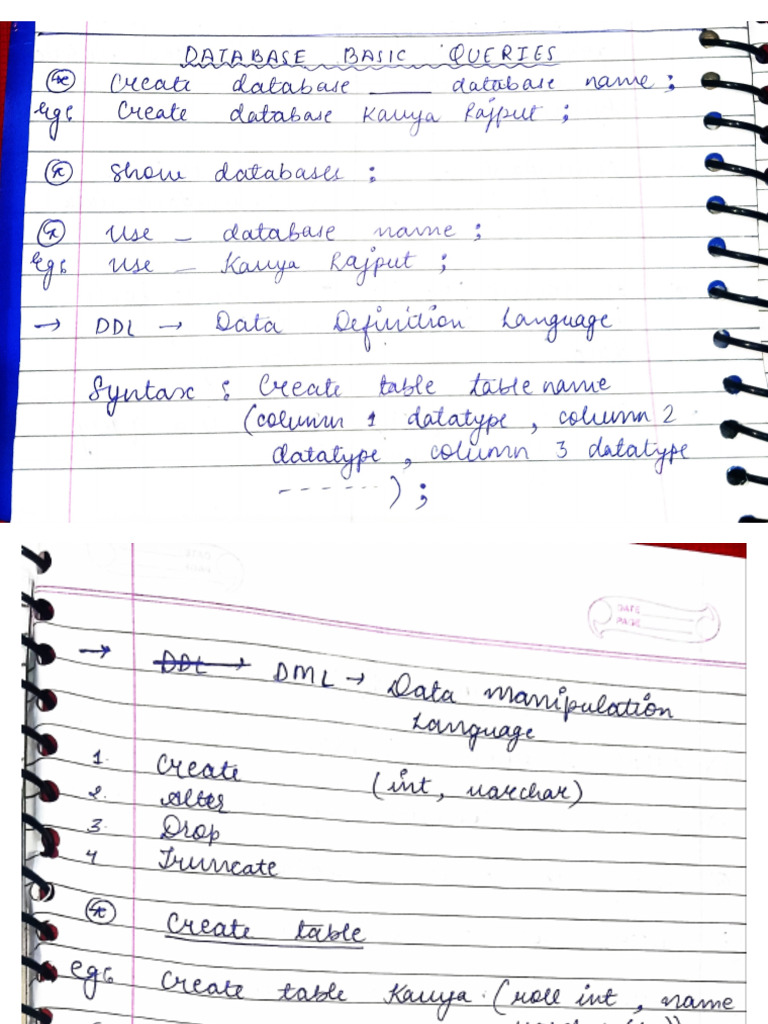 DATABASE BASIC QUERIES
Create database ____ database name ;
eg: Create database Kavya Rajput ;
Show databases ;
Use _ database name ;
Eg: Use _ Kavya Rajput ;
→ DDL → Data Definition Language
Syntax : Create table table name
(column 1 datatype , column 2
datatype , column 3 datatype
- - - - - - - ) ;
DATE
PAGE
→ DDL → DML → Data Manipulation
Language
1. Create (int, varchar)
2. Alter
3. Drop
4 Truncate
Create table
eg: Create table Kavya (roll int , name